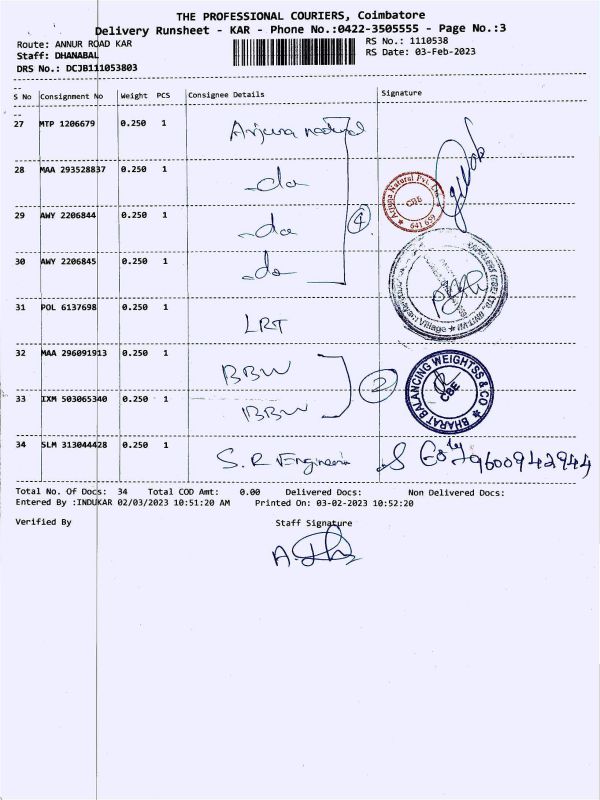 THE PROFESSIONAL COURIERS, Coimbatore
Delivery Runsheet - KAR - Phone No.:0422-3505555 - Page No.:3
Route: ANNUR ROAD KAR RS No.: 1110538
Staff: DHANABAL RS Date: 03-Feb-2023
DRS No.: DCJB111053803
S No Consignment No Weight PCS Consignee Details Signature
27 MTP 1206679 0.250 1 Arjuna natural
28 MAA 293528837 0.250 1 -do
29 AWY 2206844 0.250 1 -do
4
Arjuna Natural Pvt. Ltd. CBE 641 659
30 AWY 2206845 0.250 1 -do
31 POL 6137698 0.250 1 LRT
Village
32 MAA 296091913 0.250 1 BBW
2
BHARAT BALANCING WEIGHTSS & CO CBE
33 IXM 503065340 0.250 1 BBW
34 SLM 313044428 0.250 1 S. R Engineerin 9600942944
Total No. Of Docs: 34 Total COD Amt: 0.00 Delivered Docs: Non Delivered Docs:
Entered By :INDUKAR 02/03/2023 10:51:20 AM Printed On: 03-02-2023 10:52:20
Verified By Staff Signature